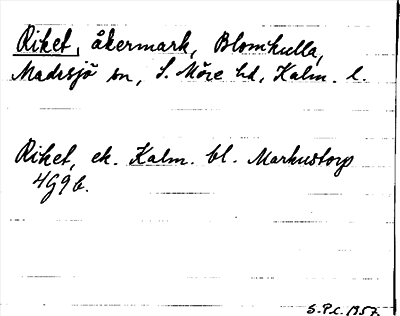 Riket, åkermark, Blomkulla,
Madesjö sn, S. Möre hd, Kalm. l.
Riket, ek. Kalm. bl. Markustorp
4G9b.
S.P.c. 1957.